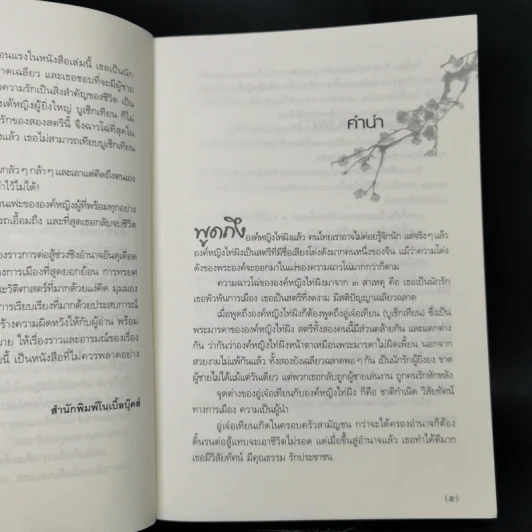 อนแรงในหนังสือเล่มนี้ เธอเป็นนัก
าดเฉลียว และเธอชอบที่จะมีผู้ชาย
ความรักเป็นสิ่งสำคัญของชีวิต เป็น
รักของสองสตรีนี้ จึงฉาวโฉ่ที่สุดใน
แล้ว เธอไม่สามารถเทียบบูเช็กเทียน
กลัวๆ กล้าๆ และเอาแต่คิดถึงตนเอง
ไว้ไม่ได้!
องค์หญิงผู้ที่พร้อมทุกอย่าง
เอื้อมถึง และที่สุดเธอกลับจบชีวิต
งราวการต่อสู้ช่วงชิงอำนาจอันดุเดือด
การเมืองที่สุดยอกย้อน การทรยศ
ะวัติศาสตร์ที่มากด้วยแง่คิด มุมมอง
การเรียบเรียงที่มากด้วยประสบการณ์
ร้างความผิดหวังให้กับผู้อ่าน พร้อม
ให้เรื่องราวและอารมณ์ของเรื่อง
นี้ เป็นหนังสือที่ไม่ควรพลาดอย่าง
สำนักพิมพ์โนเบิ้ลบุ๊คส์
คำนำ
พูดถึงองค์หญิงไท่ผิงแล้ว คนไทยเราอาจไม่ค่อยรู้จักนัก แต่จริงๆ แล้ว
องค์หญิงไท่ผิงเป็นสตรีที่มีชื่อเสียงโด่งดังมากคนหนึ่งของจีน แม้ว่าความโด่ง
ดังของพระองค์จะออกมาในแง่ของความฉาวโฉ่มากกว่าก็ตาม
ความฉาวโฉ่ขององค์หญิงไท่ผิงมาจาก ๓ สาเหตุ คือ เธอเป็นนักรัก
เธอพัวพันการเมือง เธอเป็นสตรีที่งดงาม มีสติปัญญาเฉลียวฉลาด
เมื่อพูดถึงองค์หญิงไท่ผิงก็ต้องพูดถึงอู่เจ๋อเทียน (บูเช็กเทียน) ซึ่งเป็น
พระมารดาขององค์หญิงไท่ผิง สตรีทั้งสองคนนี้มีส่วนคล้ายกัน และแตกต่าง
กัน ว่ากันว่าองค์หญิงไท่ผิงหน้าตาเหมือนพระมารดาไม่ผิดเพี้ยน นอกจาก
สวยงามไม่แพ้กันแล้ว ทั้งสองยังเฉลียวฉลาดพอๆ กัน เป็นนักรักผู้ยิ่งยง ขาด
ผู้ชายไม่ได้แม้แต่วันเดียว แต่พวกเธอกลับถูกผู้ชายเล่นงาน ถูกคนรักหักหลัง
จุดต่างของอู่เจ๋อเทียนกับองค์หญิงไท่ผิง ก็คือ ชาติกำเนิด วิสัยทัศน์
ทางการเมือง ความเป็นผู้นำ
อู่เจ๋อเทียนเกิดในครอบครัวสามัญชน กว่าจะได้ครองอำนาจก็ต้อง
ดิ้นรนต่อสู้แทบจะเอาชีวิตไม่รอด แต่เมื่อขึ้นสู่อำนาจแล้ว เธอทำได้ดีมาก
เธอมีวิสัยทัศน์ มีคุณธรรม รักประชาชน
(๕)